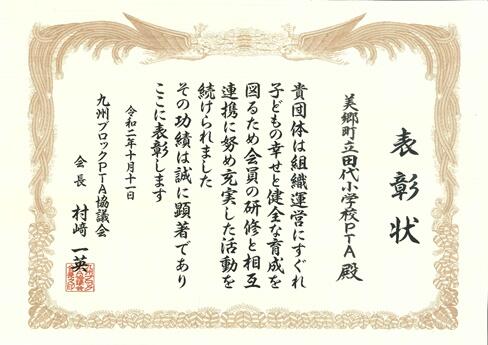 表彰状
美郷町立田代小学校PTA殿
貴団体は組織運営にすぐれ
子どもの幸せと健全な育成を
図るため会員の研修と相互
連携に努め充実した活動を
続けられました
その功績は誠に顕著であり
ここに表彰します
令和二年十月十一日
九州ブロックPTA協議会
会長 村﨑 一英